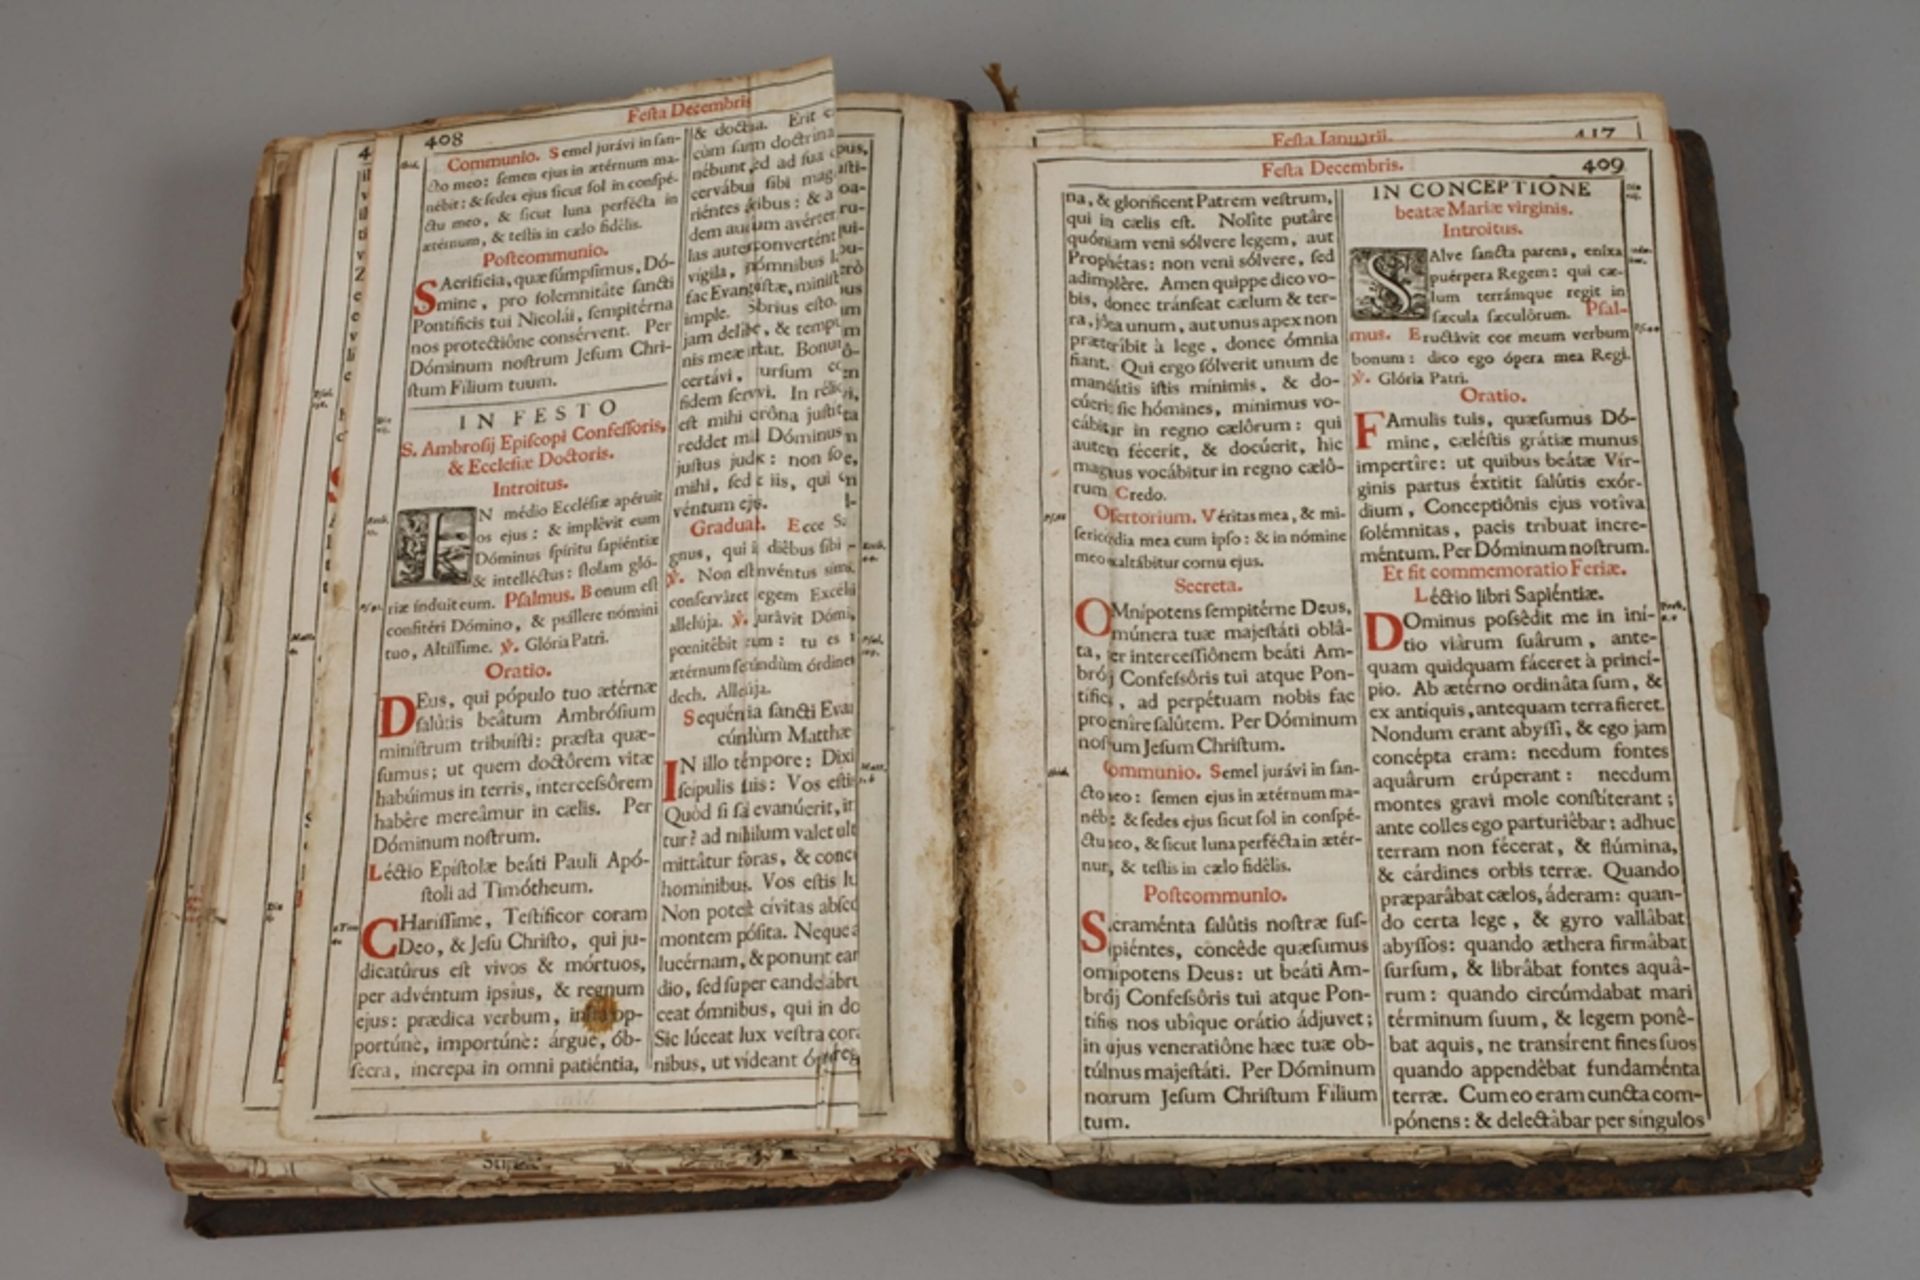 408
Festa Decembris
Communio. Semel jurávi in san-
cto meo: semen ejus in ætérnum ma-
nébit: & sedes ejus sicut sol in conspé-
ctu meo, & sicut luna perfécta in
ætérnum, & testis in cælo fidélis.
Postcommunio.
SAcrificia, quæ súmpsimus, Dó-
mine, pro solemnitâte sancti
Pontíficis tui Nicolái, sempitérna
nos protectiône consérvent. Per
Dóminum nostrum Jesum Chri-
stum Fílium tuum.
IN FESTO
S. Ambrosij Episcopi Confessoris,
& Ecclesiæ Doctoris.
Introitus.
IN médio Ecclésiæ apéruit
os ejus: & implêvit eum
Dóminus spíritu sapiéntiæ
& intelléctus: stolam gló-
riæ índuit eum. Psalmus. Bonum est
confitéri Dómino, & psállere nómini
tuo, Altíssime. ℣. Glória Patri.
Oratio.
DEus, qui pópulo tuo ætérnæ
salûtis beâtum Ambrósium
minístrum tribuísti: præsta quæ-
sumus; ut quem doctôrem vitæ
habúimus in terris, intercessôrem
habêre mereâmur in cælis. Per
Dóminum nostrum.
Léctio Epístolæ beáti Pauli Apó-
stoli ad Timótheum.
CHaríssime, Testíficor coram
Deo, & Jesu Christo, qui ju-
dicatûrus est vivos & mórtuos,
per advéntum ipsíus, & regnum
ejus: prædica verbum, insta op-
portúne, importúne: árgue, ób-
secra, íncrepa in omni patiéntia,
& doctrina. Erit
cùm sanam doctrina
nébunt, sed ad sua
cervábunt sibi mag
riéntes áuribus: & a
dem audítum avérter
las autem convertént
vígila, in ómnibus
fac Evangelístæ, minist
imple. Sóbrius esto.
jam delibor, & temp
nis meæ instat. Bonu
certávi, cursum
fidem servávi. In réli
est mihi corôna justit
reddet mihi Dóminus
justus judex: non so
mihi, sed & iis, qui
véntum ejus.
Graduale. Ecce
gnus, qui in diêbus
℣. Non est invéntus
conservâret legem Excél
allelúja. ℣. Jurávit Dómi
pœnitébit eum: tu es
ætérnum secúndùm órdine
dech. Allelúja.
Sequéntia sancti Evan
cúndùm Matthæ
IN illo témpore: Dixi
scípulis suis: Vos estis
Quòd si sal evanúerit, in
tur? ad níhilum valet ult
mittâtur foras, & conc
homínibus. Vos estis lu
Non potest cívitas absco
montem pósita. Neque
lucérnam, & ponunt ean
dio, sed super candelábru
ceat ómnibus, qui in do
Sic lúceat lux vestra cora
nibus, ut vídeant
Festa Ianuarii. 417
Festa Decembris. 409
na, & glorificent Patrem vestrum,
qui in cælis est. Nolíte putâre
quóniam veni sólvere legem, aut
Prophétas: non veni sólvere, sed
adimplêre. Amen quippe dico vo-
bis, donec tránseat cælum & ter-
ra, jóta unum, aut unus apex non
præteríbit à lege, donec ómnia
fiant. Qui ergo sólverit unum de
mandátis istis mínimis, & do-
cúerit sic hómines, mínimus vo-
cábitur in regno cælôrum: qui
autem fécerit, & docúerit, hic
magnus vocábitur in regno cælô-
rum. Credo.
Offertorium. Véritas mea, & mi-
sericórdia mea cum ipso: & in nómine
meo exaltábitur cornu ejus.
Secreta.
OMnípotens sempitérne Deus,
múnera tuæ majestáti oblâ-
ta, per intercessiônem beáti Am-
brósij Confessôris tui atque Pon-
tíficis, ad perpétuam nobis fac
proveníre salûtem. Per Dóminum
nostrum Jesum Christum.
Communio. Semel jurávi in san-
cto meo: semen ejus in ætérnum ma-
nébit: & sedes ejus sicut sol in conspé-
ctu meo, & sicut luna perfécta in ætér-
num, & testis in cælo fidélis.
Postcommunio.
Sacraménta salûtis nostræ sus-
cipiéntes, concéde quæsumus
omnípotens Deus: ut beáti Am-
brósij Confessôris tui atque Pon-
tíficis nos ubíque orátio ádjuvet;
in cujus veneratiône hæc tuæ ob-
túlimus majestáti. Per Dóminum
nostrum Jesum Christum Fílium
tuum.
IN CONCEPTIONE
beatæ Mariæ virginis.
Introitus.
SAlve sancta parens, eníxa
puérpera Regem: qui cæ-
lum terrámque regit in
sæcula sæculôrum. Psal-
mus. Eructávit cor meum verbum
bonum: dico ego ópera mea Regi.
℣. Glória Patri.
Oratio.
FAmulis tuis, quæsumus Dó-
mine, cæléstis grátiæ munus
impertíre: ut quibus beátæ Vír-
ginis partus éxtitit salûtis exór-
dium, Conceptiônis ejus votíva
solémnitas, pacis tríbuat incre-
méntum. Per Dóminum nostrum.
Et fit commemoratio Feriæ.
Léctio libri Sapiéntiæ.
DOminus possédit me in iní-
tio viârum suârum, ante-
quam quidquam fáceret à princí-
pio. Ab ætérno ordinâta sum, &
ex antíquis, antequam terra fíeret.
Nondum erant abyssi, & ego jam
concépta eram: necdum fontes
aquârum erúperant: necdum
montes gravi mole constíterant;
ante colles ego parturiêbar: adhuc
terram non fécerat, & flúmina,
& cárdines orbis terræ. Quando
præparâbat cælos, áderam: quan-
do certa lege, & gyro vallâbat
abyssos: quando æthera firmâbat
sursum, & librâbat fontes aquâ-
rum: quando circúmdabat mari
términum suum, & legem ponê-
bat aquis, ne transírent fines suos
quando appendêbat fundaménta
terræ. Cum eo eram cuncta com-
pónens: & delectâbar per síngulos